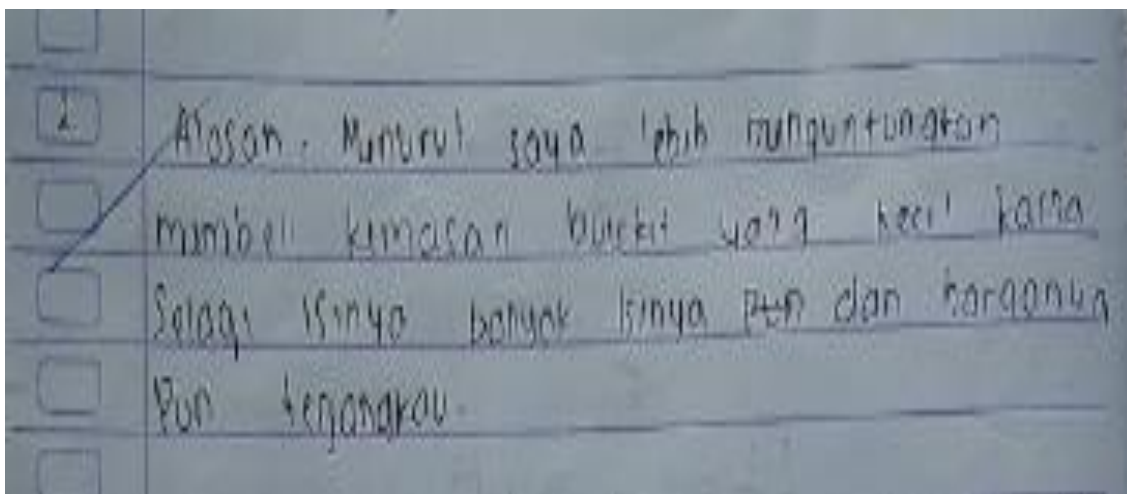 2 Alasan. Menurut saya lebih menguntungkan
membeli kemasan yang kecil karna
Selagi isinya banyak isinya pun dan harganya
Pun terjangkau.